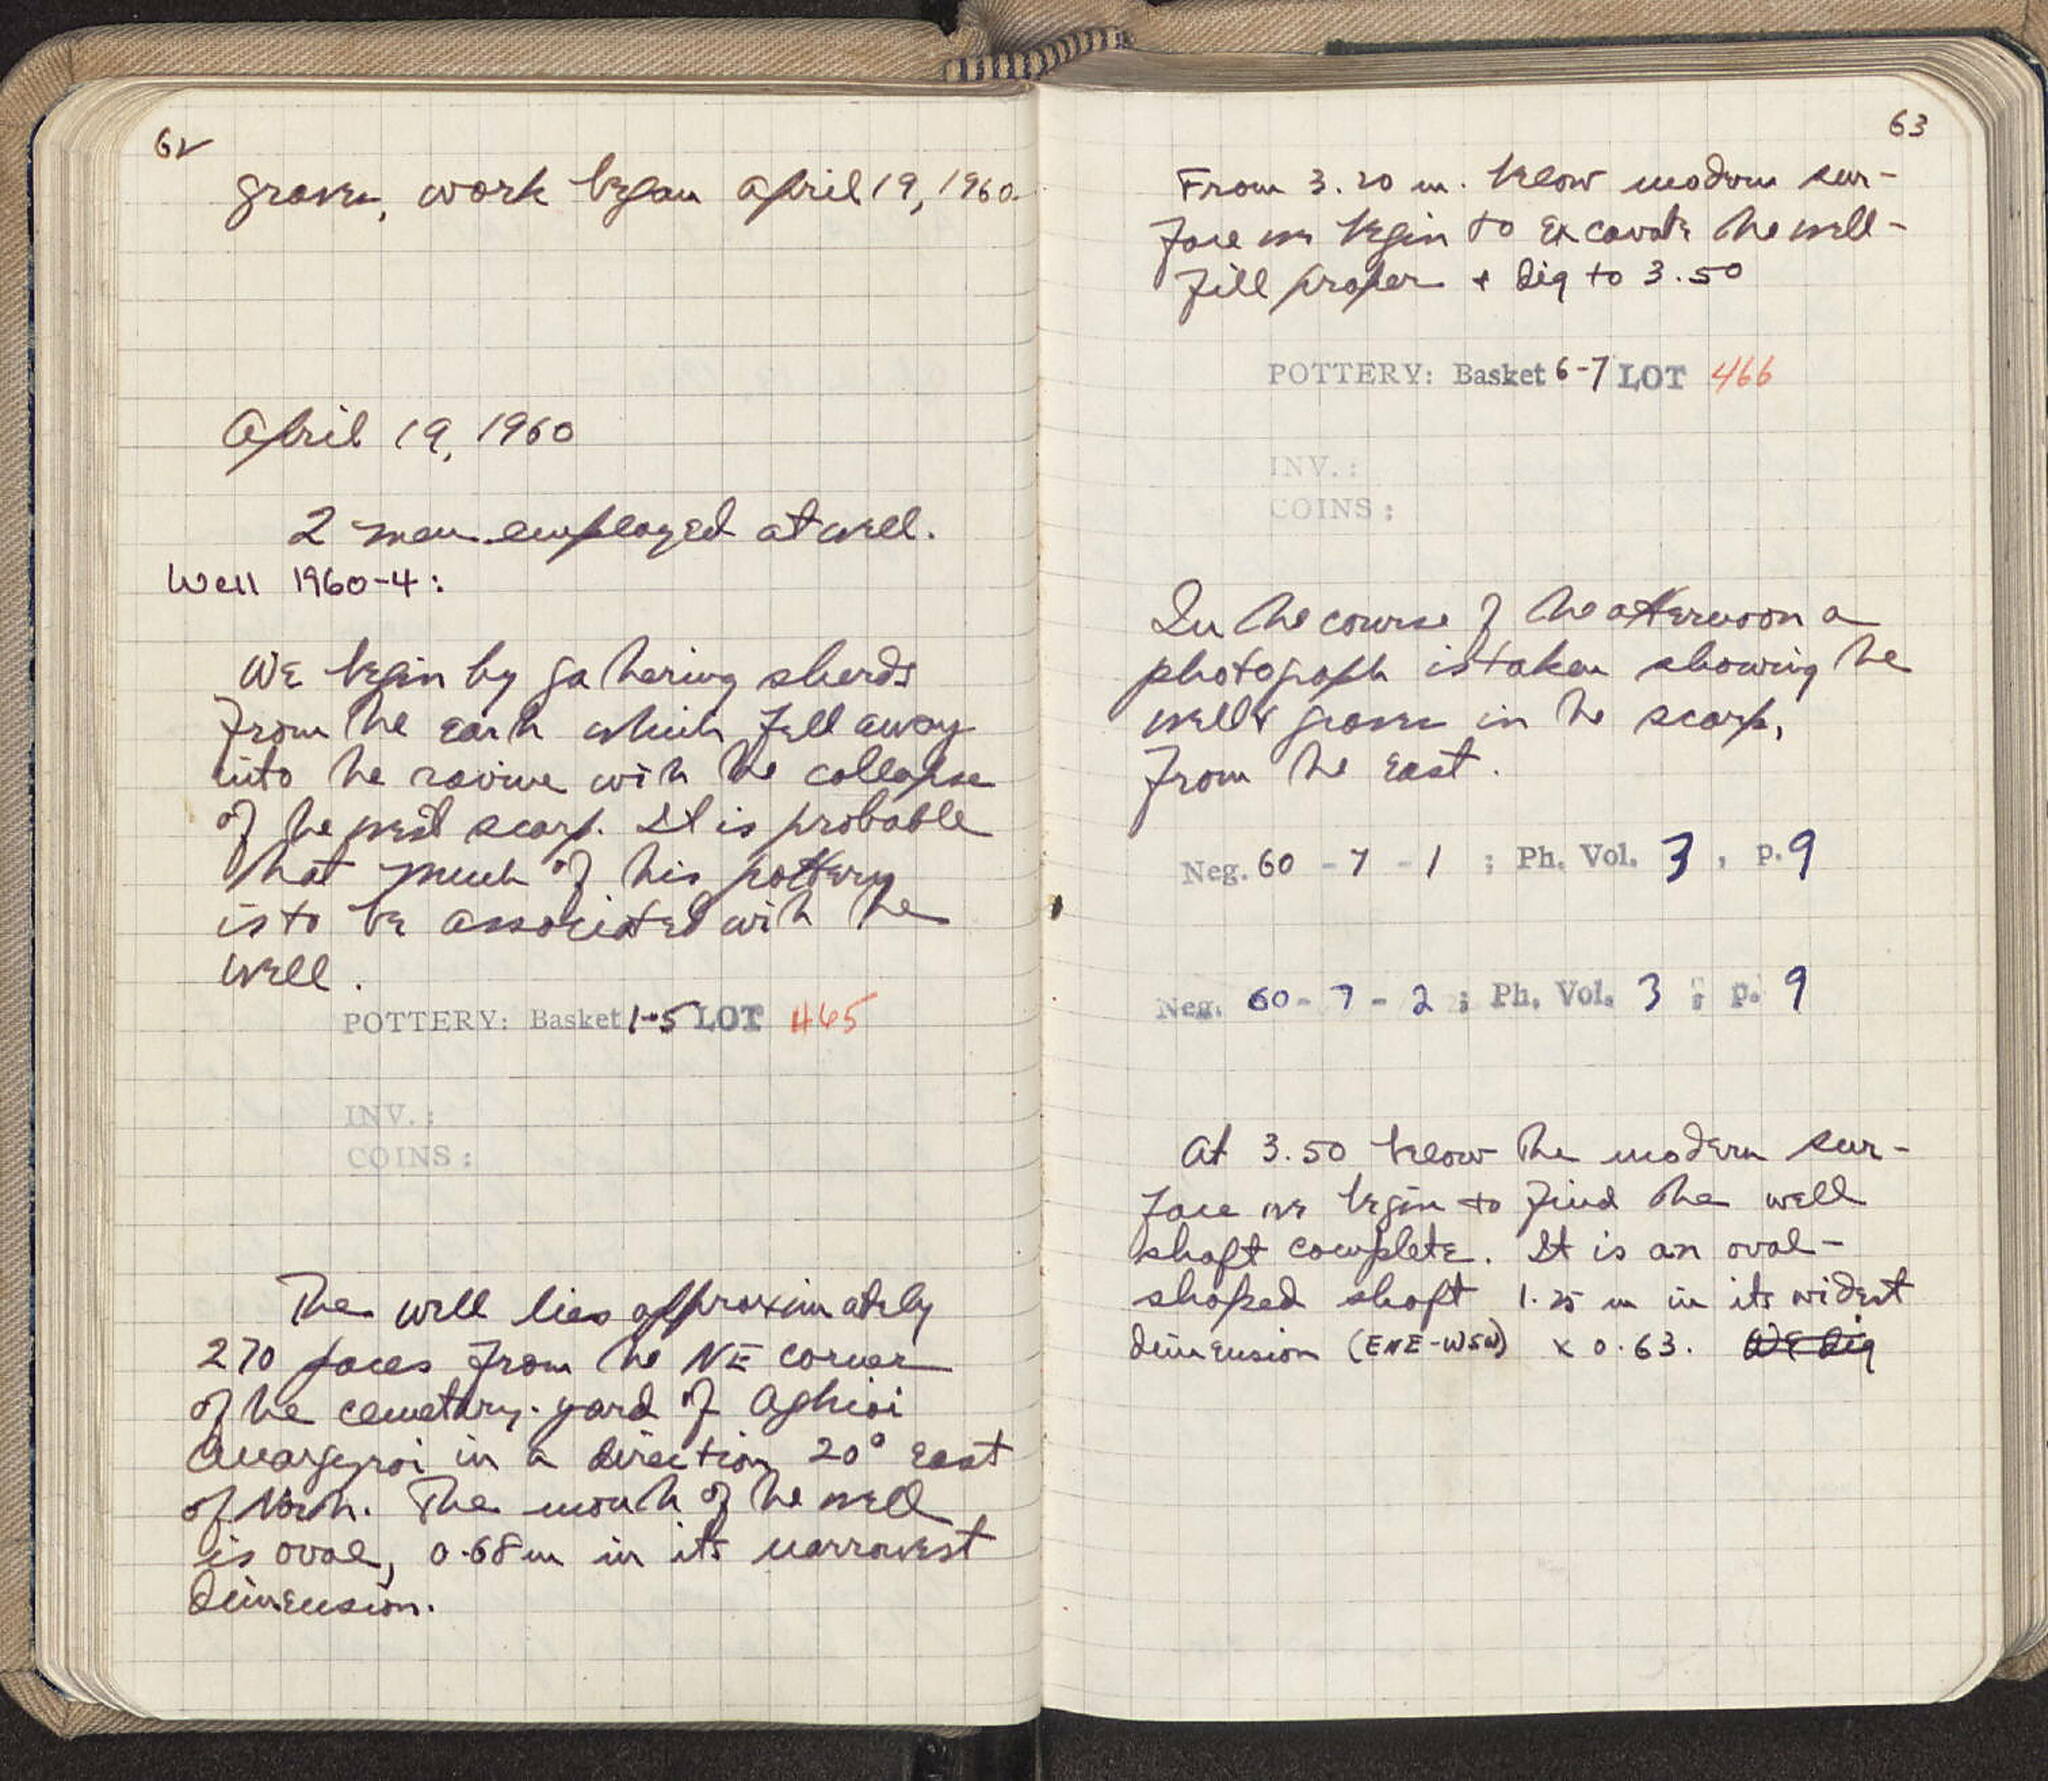 62
graves, work began April 19, 1960.
April 19, 1960
2 men employed at well.
Well 1960-4:
We begin by gathering sherds
from the earth which fell away
into the ravine with the collapse
of the west scarp. It is probable
that much of this pottery
is to be associated with the
well.
POTTERY: Basket 1-5 LOT 465
INV.:
COINS:
The well lies approximately
270 paces from the NE corner
of the cemetary-yard of Aghioi
Anargyroi in a direction 20° east
of North. The mouth of the well
is oval, 0.68 m in its narrowest
dimension.
63
From 3.20 m. below modern sur-
face we begin to excavate the well-
fill proper + dig to 3.50
POTTERY: Basket 6-7 LOT 466
INV.:
COINS:
In the course of the afternoon a
photograph is taken showing the
well & graves in the scarp,
from the east.
Neg. 60 - 7 - 1 ; Ph. Vol. 3 , p. 9
Neg. 60 - 7 - 2 ; Ph. Vol. 3 ; p. 9
At 3.50 below the modern sur-
face we begin to find the well
shaft complete. It is an oval-
shaped shaft 1.25 m in its widest
dimension (ENE-WSW) x 0.63. We dig